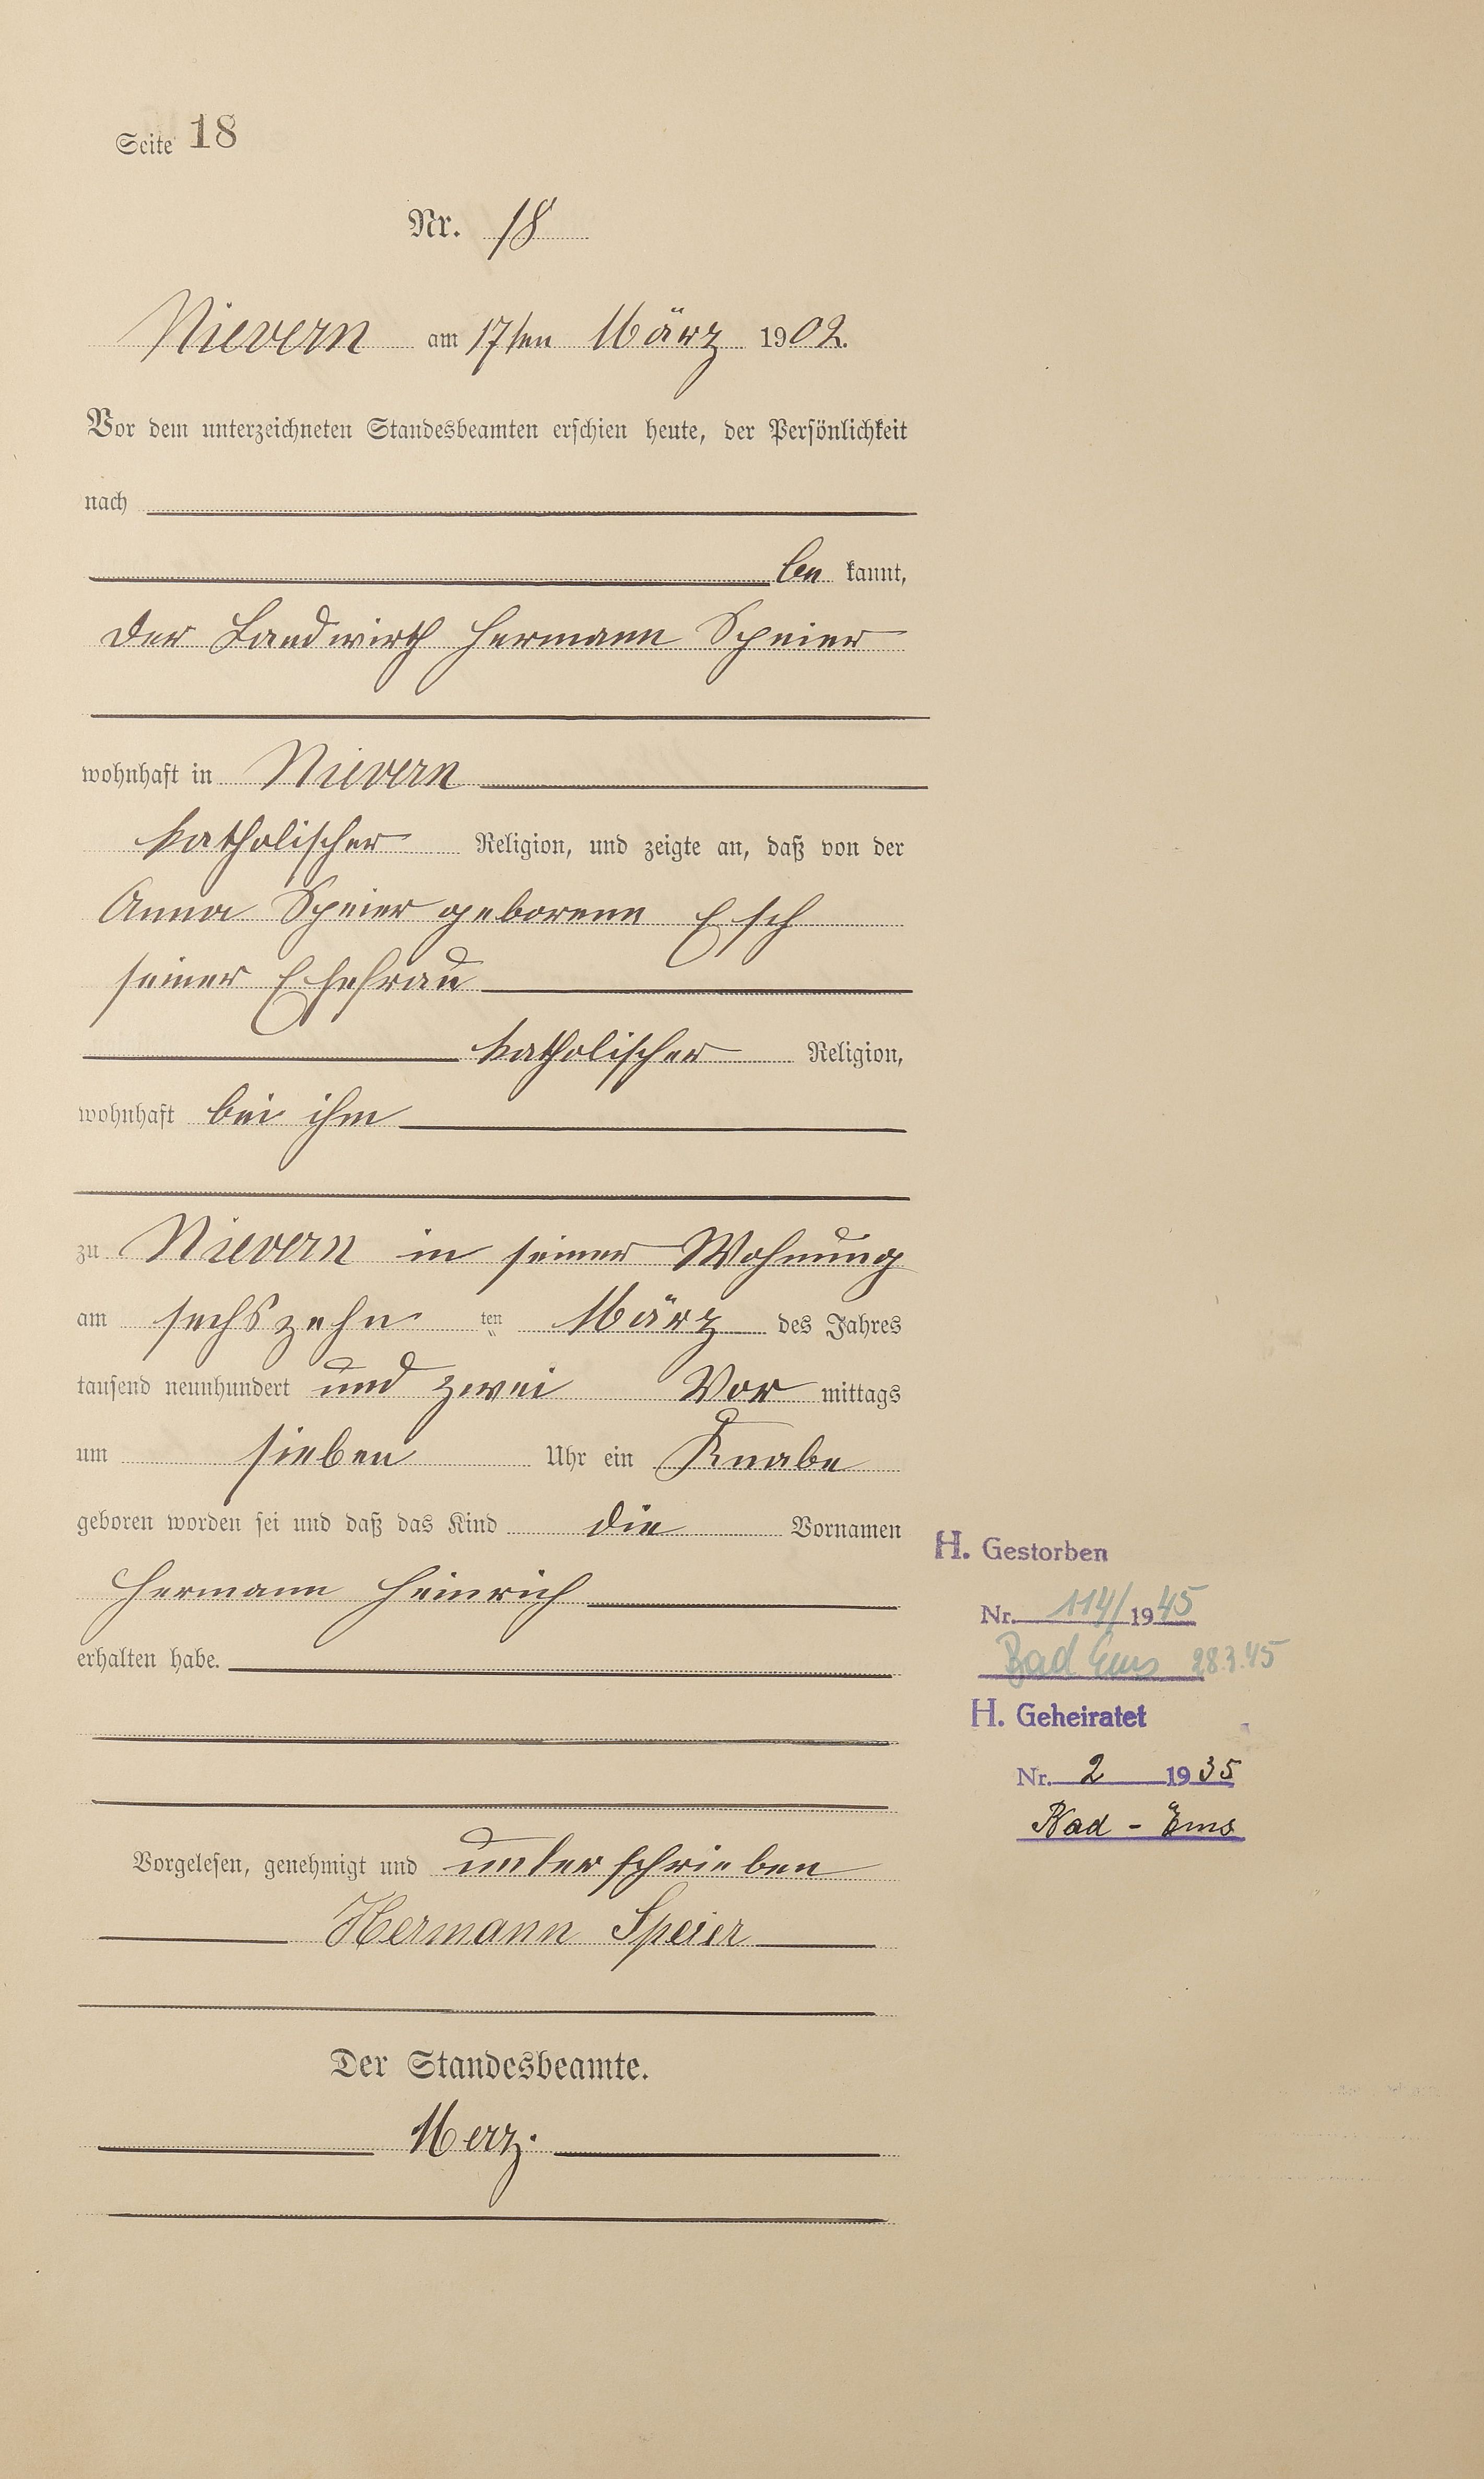 Seite 18
Nr. 18
Nievern am 17ten März 1902.
Vor dem unterzeichneten Standesbeamten erschien heute, der Persönlichkeit
nach
be kannt,
der Landwirth Hermann Speier
wohnhaft in Nievern
katholischer Religion, und zeigte an, daß von der
Anna Speier geborene Esch
seiner Ehefrau
katholischer Religion,
wohnhaft bei ihm
zu Nievern in seiner Wohnung
am sechszehn ten März des Jahres
tausend neunhundert und zwei Vor mittags
um sieben Uhr ein Knabe
geboren worden sei und daß das Kind die Vornamen
Hermann Heinrich
erhalten habe.
Vorgelesen, genehmigt und unterschrieben
Hermann Speier
Der Standesbeamte.
Merz.
H. Gestorben
Nr. 114/1945
Bad Ems 28.3.45
H. Geheiratet
Nr. 2 1935
Bad-Ems